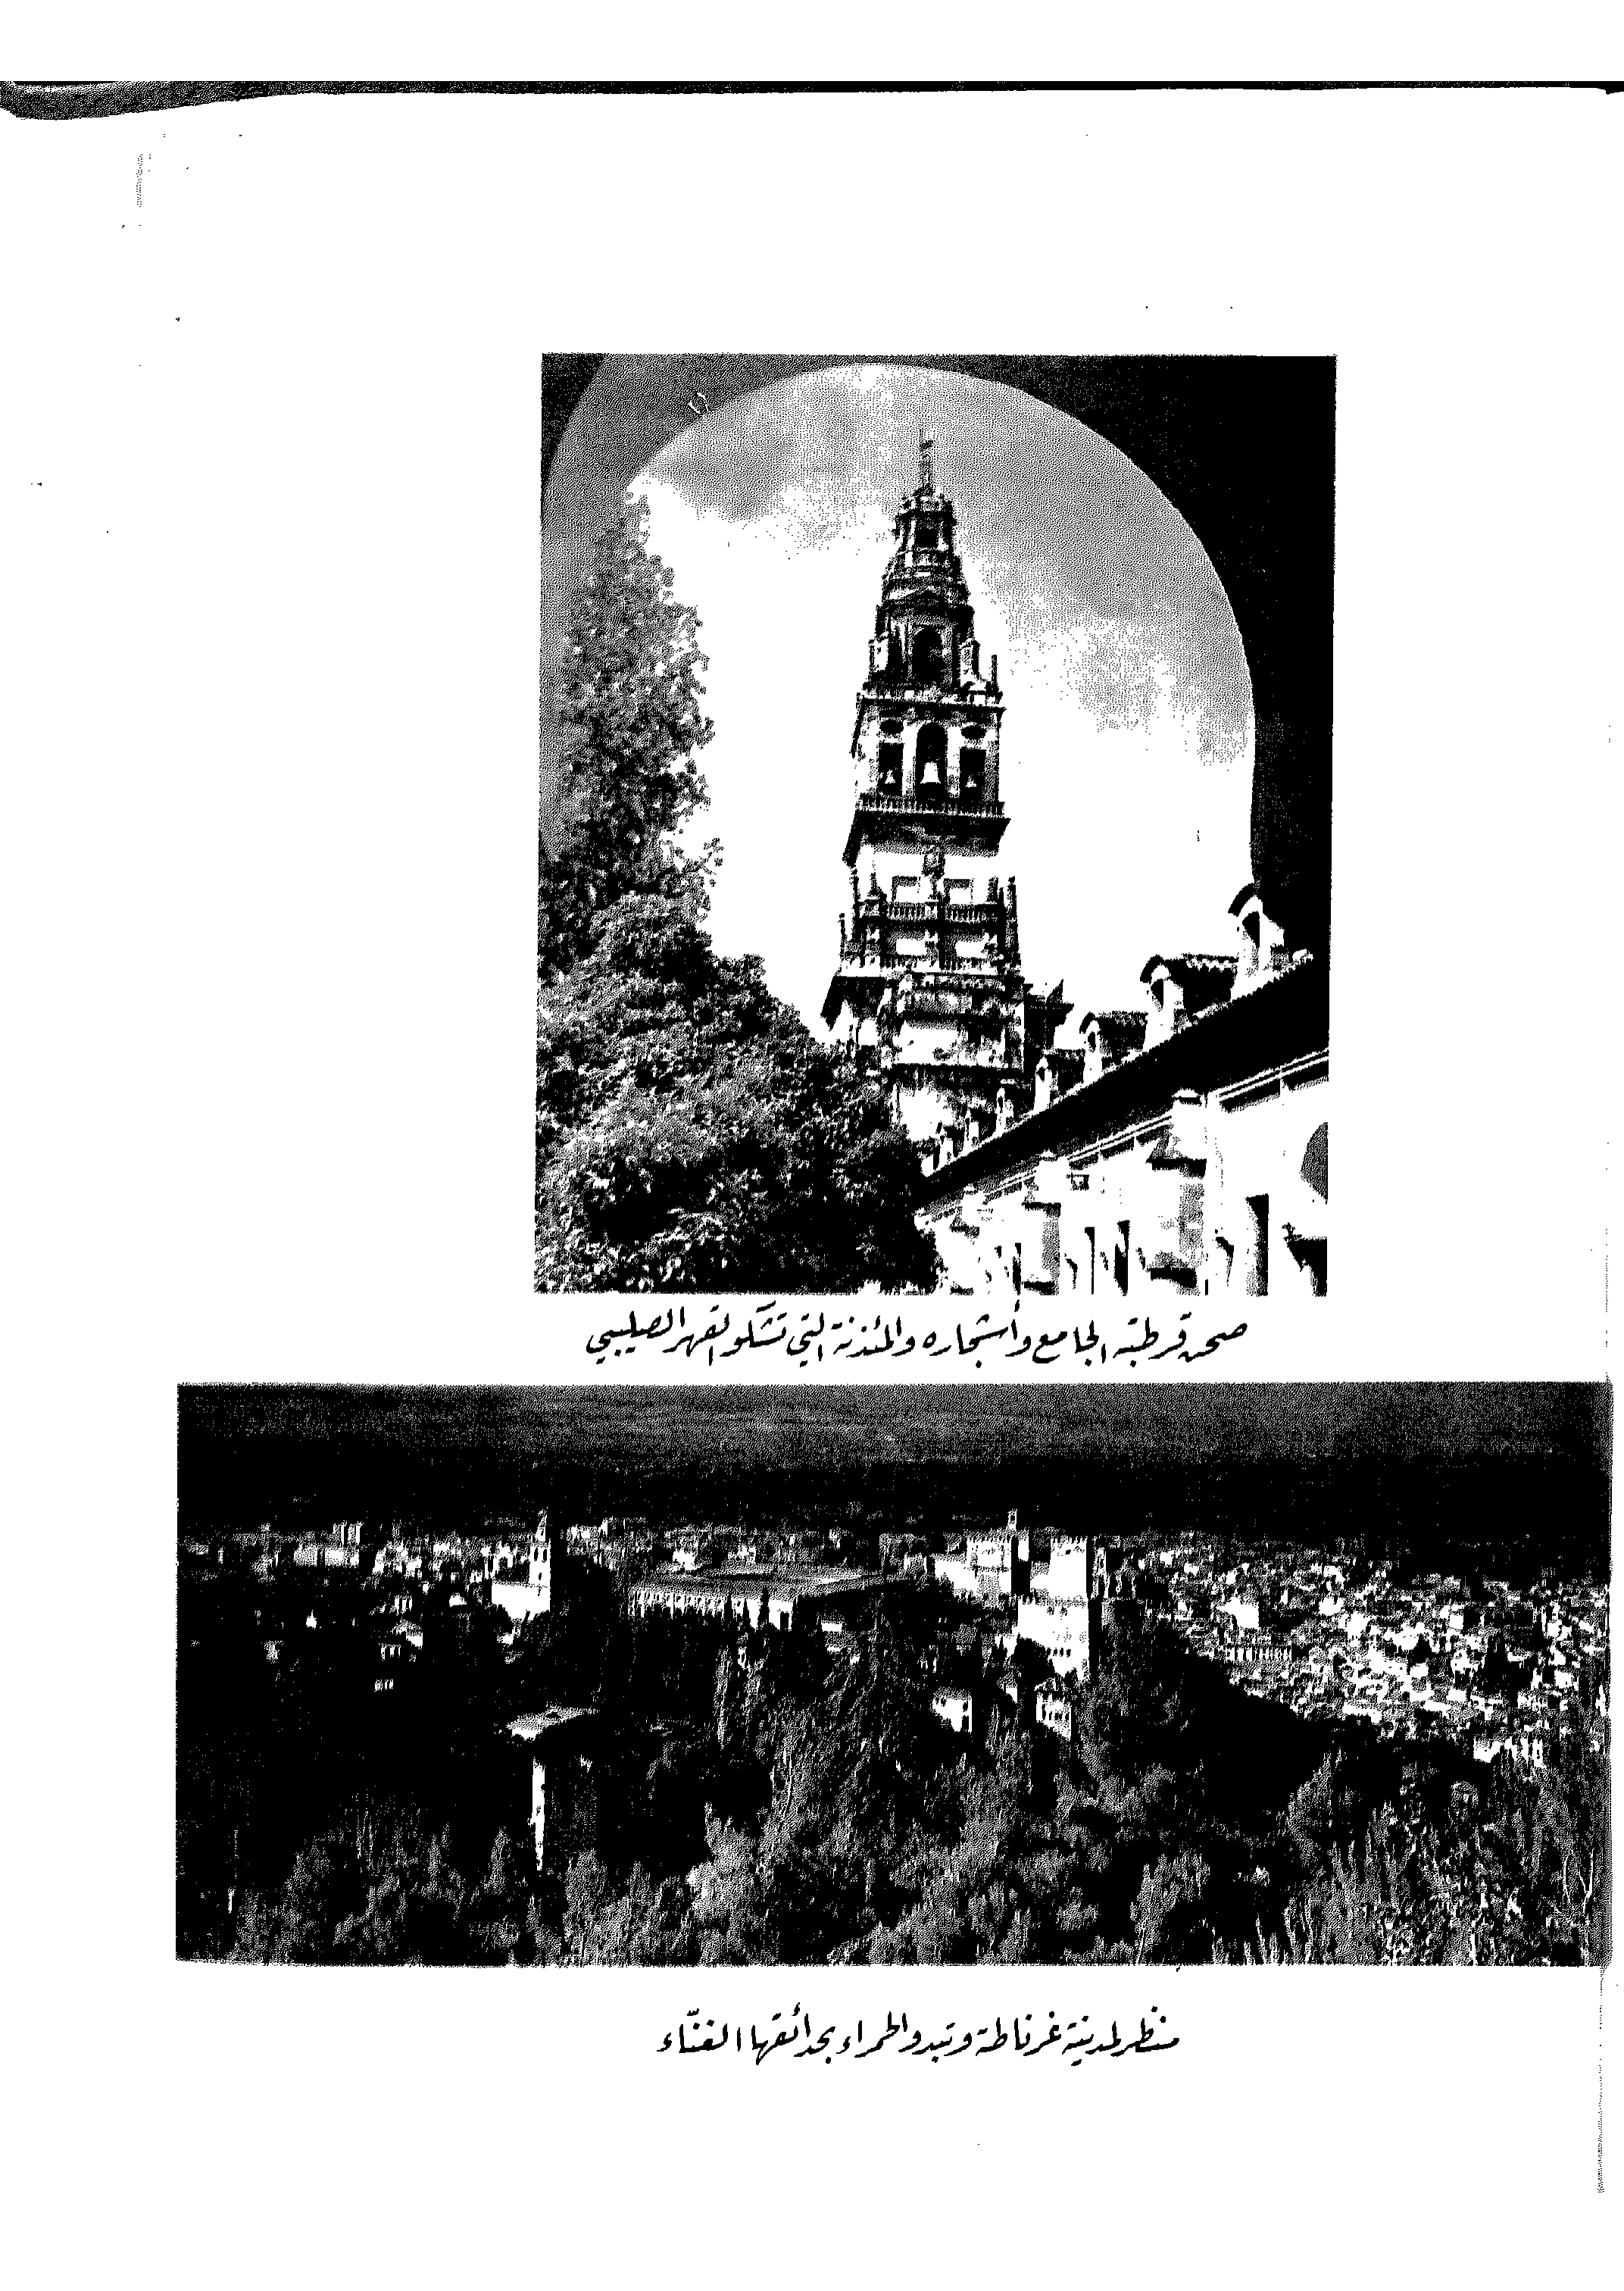 صحن قرطبة الجامع وأشجاره والمئذنة التي تشكو القهر الصليبي
منظر لمدينة غرناطة وتبدو الحمراء بحدائقها الغنّاء